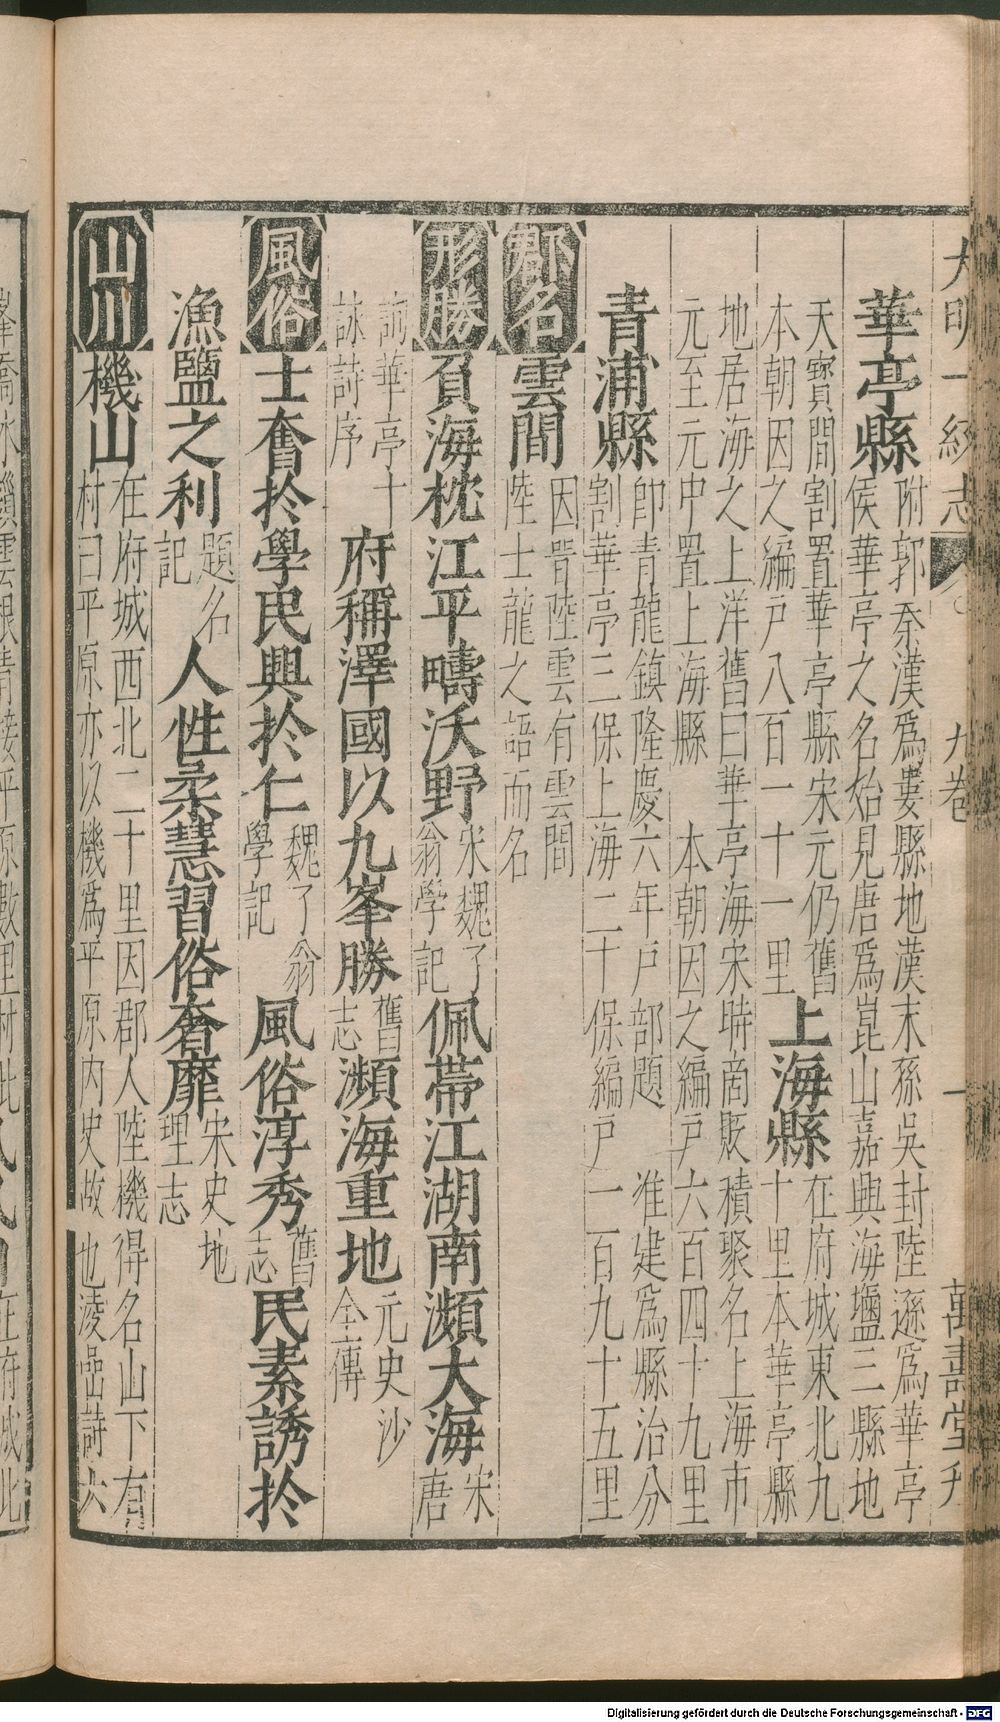 大明一統志 九卷 一 萬壽堂刋
華亭縣 附郭秦漢爲婁縣地漢末孫吳封陸遜爲華亭
侯華亭之名始見唐爲崑山嘉興海鹽三縣地
天寶間割置華亭縣宋元仍舊
本朝因之編戶八百一十一里 上海縣 在府城東北九
十里本華亭縣
地居海之上洋舊曰華亭海宋時商販積聚名上海市
元至元中置上海縣 本朝因之編戶六百四十九里
青浦縣 卽青龍鎮隆慶六年戶部題 准建爲縣治分
割華亭三保上海二十保編戶一百九十五里
郡名 雲間 因晋陸雲有雲間
陸士龍之語而名
形勝 負海枕江平疇沃野 宋魏了
翁學記 佩帶江湖南瀕大海 宋
唐
詢華亭十
詠詩序 府稱澤國以九峯勝 舊
志 瀕海重地 元史沙
全傳
風俗 士奮於學民興於仁 魏了翁
學記 風俗淳秀 舊
志 民素誘於
漁鹽之利 題名
記 人性柔慧習俗奢靡 宋史地
理志
山川 機山 在府城西北二十里因郡人陸機得名山下有
村曰平原亦以機爲平原內史故也凌嵒詩六
Digitalisierung gefördert durch die Deutsche Forschungsgemeinschaft - DFG